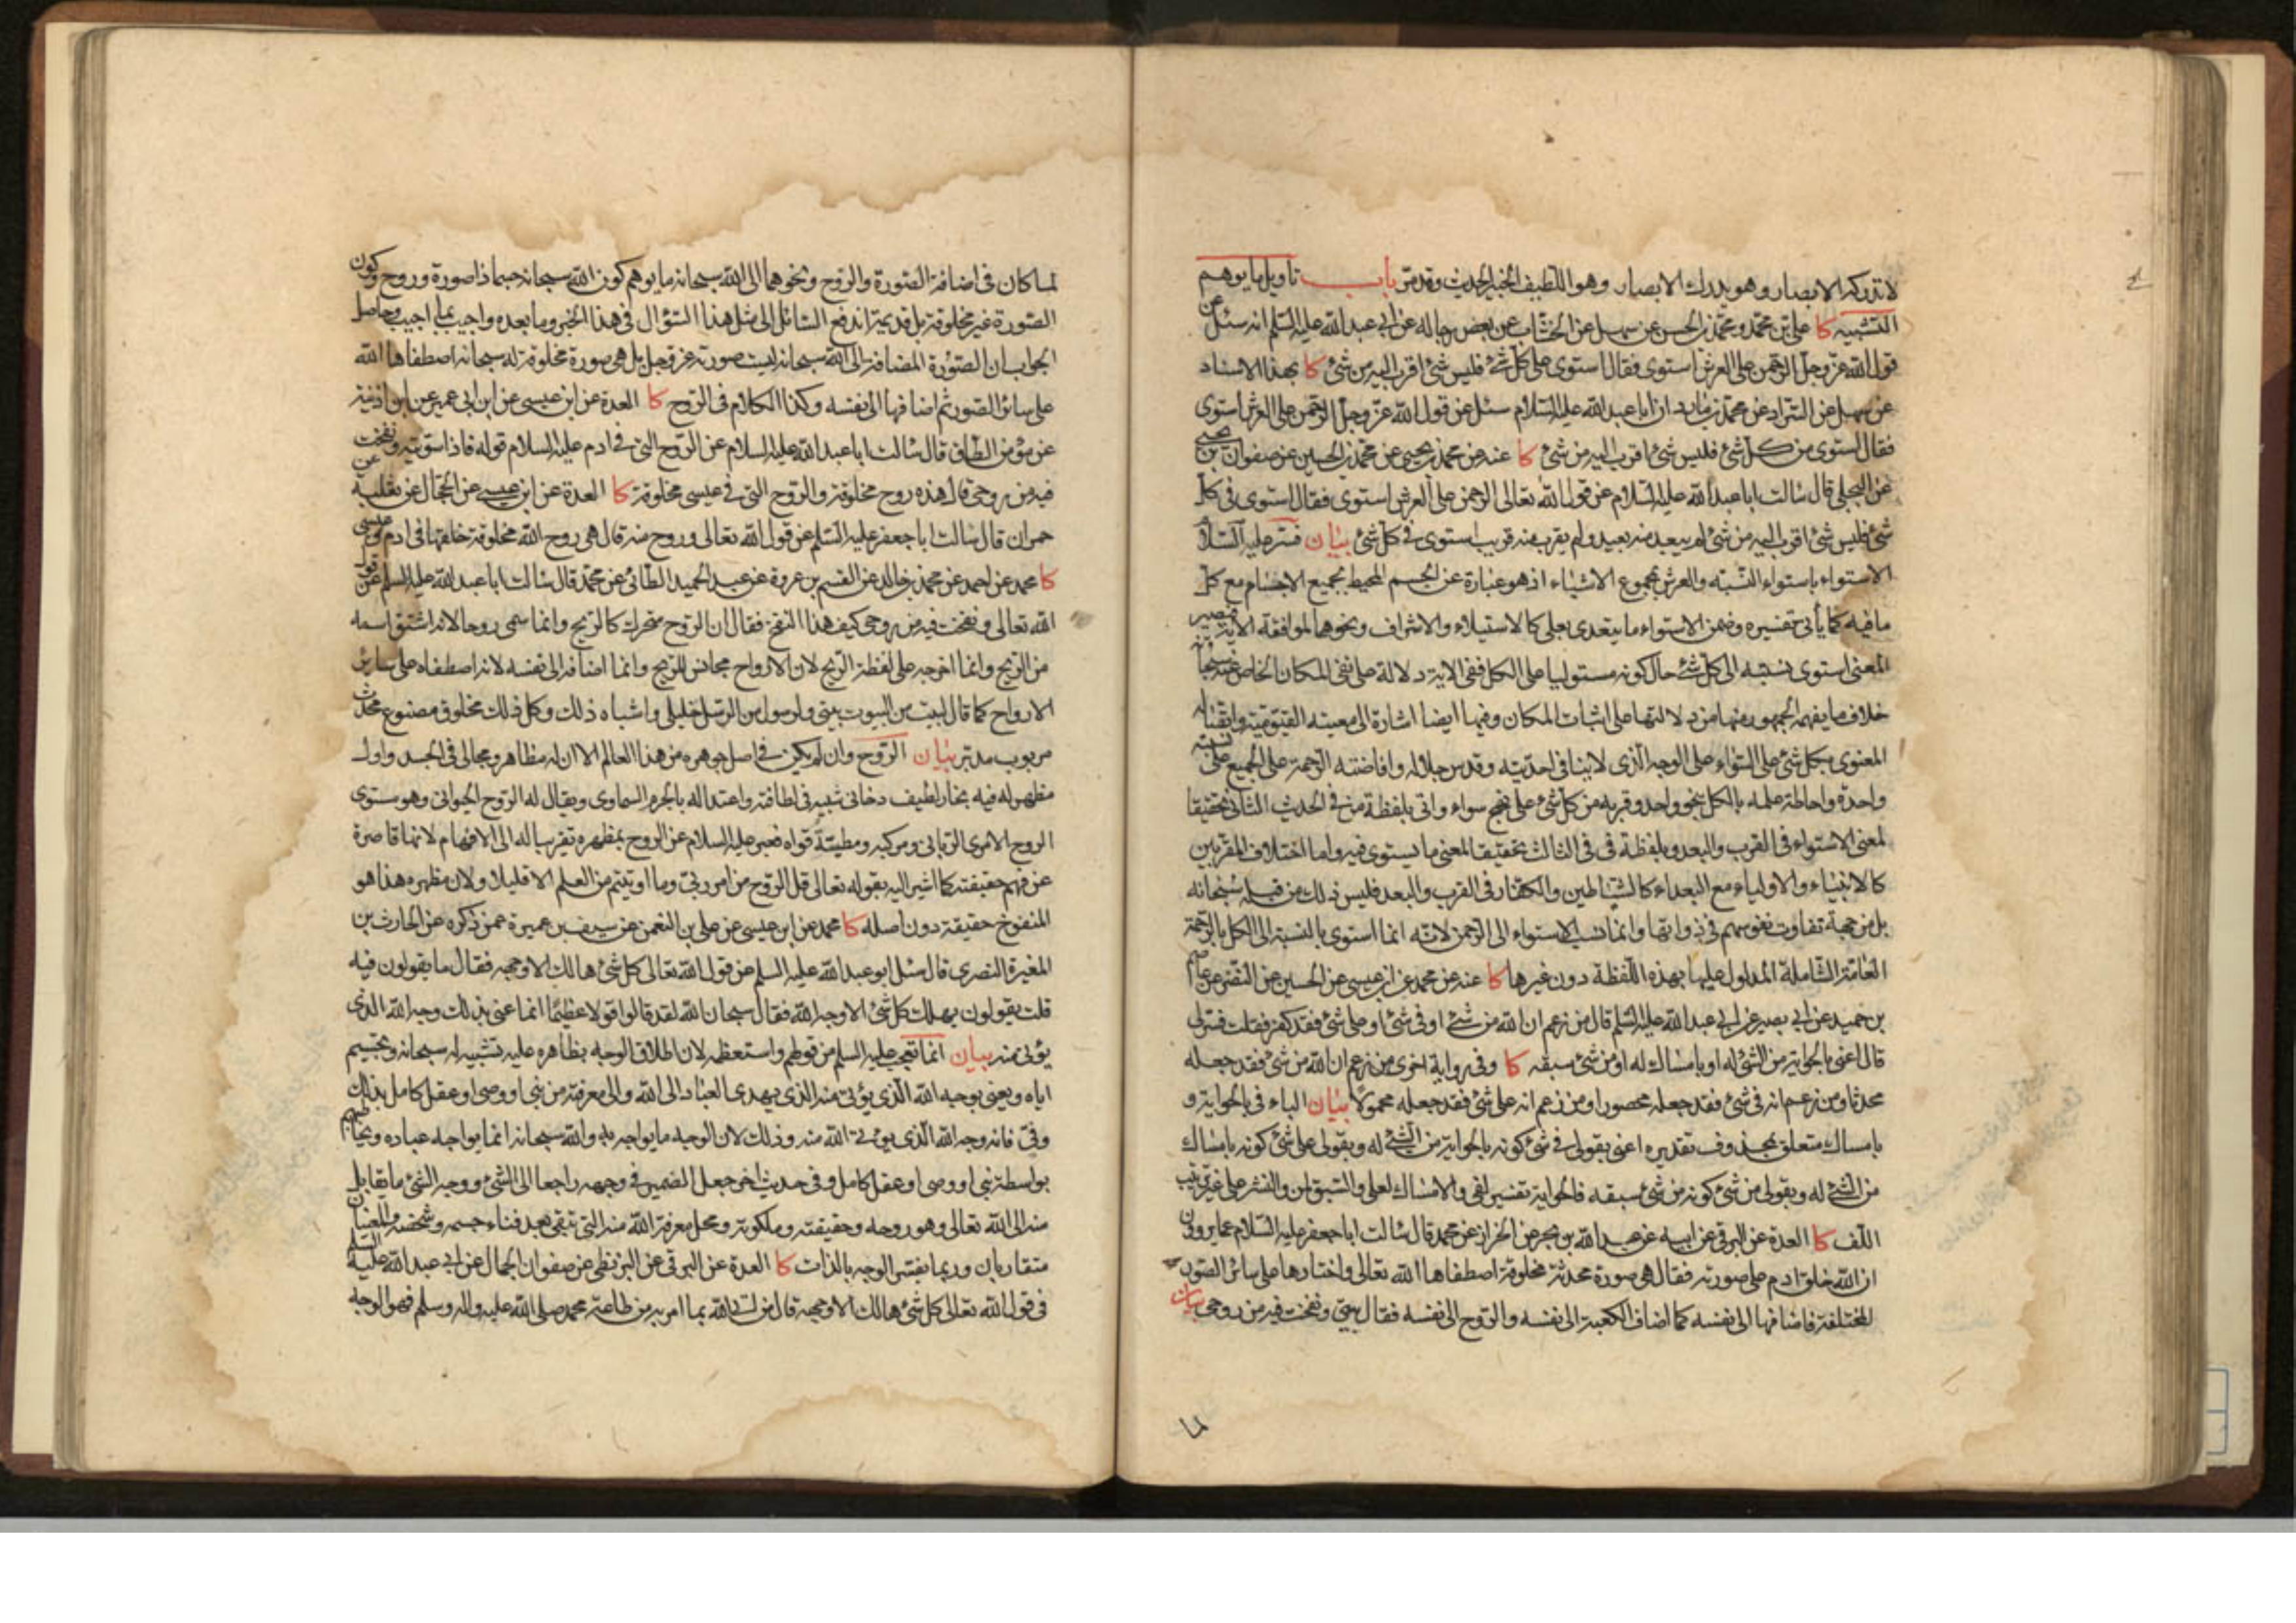 لا تدركه الابصار وهو يدرك الابصار وهو اللطيف الخبير الحديث وقد مرّ باب تأويل ما يوهم
التشبيه كا علي بن محمد ومحمد بن الحسن عن سهل عن الخشاب عن بعض رجاله عن ابي عبد الله عليه السلم انه سئل عن
قول الله عزّ وجلّ الرحمن على العرش استوى فقال استوى على كل شئ فليس شئ اقرب اليه من شئ كا بهذا الاسناد
عن سهل عن السّراد عن محمد بن مارد ان ابا عبد الله عليه السلام سئل عن قول الله عزّ وجلّ الرحمن على العرش استوى
فقال استوى من كل شئ فليس شئ اقرب اليه من شئ كا عنه عن محمد بن يحيى عن محمد بن الحسين عن صفوان بن يحيى
عن البجلي قال سالت ابا عبد الله عليه السلام عن قول الله تعالى الرحمن على العرش استوى فقال استوى في كل
شئ فليس شئ اقرب اليه من شئ لم يبعد منه بعيد ولم يقرب منه قريب استوى في كل شئ بيان فسّر عليه السلام
الاستواء باستواء النسبة والعرش بمجموع الاشياء اذ هو عبارة عن الجسم المحيط بجميع الاجسام مع كل
ما فيه كما يأتي تفسيره وضمن الاستواء ما يتعدى بعلى كالاستيلاء والاشراف ونحوهما لموافقة الاية فيصير
المعنى استوى نسبته الى كل شئ حال كونه مستوليا على الكل ففي الاية دلالة على نفي المكان الخاص عنه سبحانه
خلاف ما يفهمه الجمهور منها من دلالتها على اثبات المكان وفيها ايضا اشارة الى معيته القيومية واتصاله
المعنوي بكل شئ على السواء على الوجه الذي لا ينافي احديته وقدس جلاله وافاضته الرحمة على الجميع على نسبة
واحدة واحاطة علمه بالكل بنحو واحد وقربه من كل شئ على نهج سواء واتى بلفظة من في الحديث الثاني تحقيقا
لمعنى الاستواء في القرب والبعد وبلفظة في في الثالث تحقيقا لمعنى ما يستوي فيه واما اختلاف المقربين
كالانبياء والاولياء مع البعداء كالشياطين والكفار في القرب والبعد فليس ذلك من قبله سبحانه
بل من جهة تفاوت نفوسهم في ذواتها وانما نسب الاستواء الى الرحمن لانه انما استوى بالنسبة الى الكل بالرحمة
العامة الشاملة المدلول عليها بهذه اللفظة دون غيرها كا عنه عن محمد عن ابن عيسى عن الحسين عن النضر عن عاصم
بن حميد عن ابي بصير عن ابي عبد الله عليه السلم قال من زعم ان الله من شئ او في شئ او على شئ فقد كفر فقلت فسّر لي
قال اعني بالحواية من الشئ له او بامساك له او من شئ سبقه كا وفي رواية اخرى من زعم ان الله من شئ فقد جعله
محدثا ومن زعم انه في شئ فقد جعله محصورا ومن زعم انه على شئ فقد جعله محمولا بيان الباء في بالحواية و
بامساك متعلق بمحذوف تقديره اعني بقولي في شئ كونه بالحواية من الشئ له وبقولي على شئ كونه بامساك
من الشئ له وبقولي من شئ كونه من شئ سبقه فالحواية تفسير لفي والامساك لعلى والسبق لمن والنشر على غير ترتيب
اللف كا العدة عن البرقي عن ابيه عن عبد الله بن بحر عن الخزاز عن محمد قال سالت ابا جعفر عليه السلام عما يروون
ان الله خلق ادم على صورته فقال هي صورة محدثة مخلوقة اصطفاها الله تعالى واختارها على سائر الصور
المختلفة فاضافها الى نفسه كما اضاف الكعبة الى نفسه والروح الى نفسه فقال بيتي ونفخت فيه من روحي بيان
لما كان في اضافة الصورة والروح ونحوهما الى الله سبحانه ما يوهم كون الله سبحانه جسما ذا صورة وروح وكون
الصورة غير مخلوقة بل قديمة اندفع السائل الى مثل هذا السؤال في هذا الخبر وما بعده واجيب بما اجيب وحاصل
الجواب ان الصورة المضافة الى الله سبحانه ليست صورته عز وجل بل هي صورة مخلوقة لله سبحانه اصطفاها الله
على سائر الصور ثم اضافها الى نفسه وكذا الكلام في الروح كا العدة عن ابن عيسى عن ابن ابي عمير عن ابن اذينة
عن مؤمن الطاق قال سالت ابا عبد الله عليه السلام عن الروح التي في ادم عليه السلام قوله فاذا سويته ونفخت
فيه من روحي قال هذه روح مخلوقة والروح التي في عيسى مخلوقة كا العدة عن ابن عيسى عن الحجال عن ثعلبة عن
حمران قال سالت ابا جعفر عليه السلم عن قول الله تعالى وروح منه قال هي روح الله مخلوقة خلقها في ادم وعيسى
كا محمد عن احمد عن محمد بن خالد عن القسم بن عروة عن عبد الحميد الطائي عن محمد قال سالت ابا عبد الله عليه السلم عن قول
الله تعالى ونفخت فيه من روحي كيف هذا النفخ فقال ان الروح متحرك كالريح وانما سمي روحا لانه اشتق اسمه
من الريح وانما اخرجه على لفظة الريح لان الارواح مجانس للريح وانما اضافه الى نفسه لانه اصطفاه على سائر
الارواح كما قال لبيت من البيوت بيتي ولرسول من الرسل خليلي واشباه ذلك وكل ذلك مخلوق مصنوع محدث
مربوب مدبّر بيان الروح وان لم يكن في اصل جوهره من هذا العالم الا ان له مظاهر ومجالي في الجسد واول
مظهر له فيه بخار لطيف دخاني شبيه في لطافته واعتداله بالجرم السماوي ويقال له الروح الحيواني وهو مستوى
الروح الامري الرباني ومركبه ومطية قواه فعبر عليه السلام عن الروح بمظهره تقريبا له الى الافهام لانها قاصرة
عن فهم حقيقته كما اشير اليه بقوله تعالى قل الروح من امر ربي وما اوتيتم من العلم الا قليلا ولان مظهره هذا هو
المنفوخ حقيقة دون اصله كا محمد عن ابن عيسى عن علي بن النعمن عن سيف بن عميرة عمن ذكره عن الحارث بن
المغيرة النصري قال سئل ابو عبد الله عليه السلم عن قول الله تعالى كل شئ هالك الا وجهه فقال ما يقولون فيه
قلت يقولون يهلك كل شئ الا وجه الله فقال سبحان الله لقد قالوا قولا عظيما انما عنى بذلك وجه الله الذي
يؤتى منه بيان انما تعجب عليه السلم من قولهم واستعظمه لان اطلاق الوجه بظاهره عليه تشبيه له سبحانه وتجسيم
اياه ويعني بوجه الله الذي يؤتى منه الذي يهدي العباد الى الله والى معرفته من نبي او وصي او عقل كامل بذلك
وفي فانه وجه الله الذي يؤتى الله منه وذلك لان الوجه ما يواجه به والله سبحانه انما يواجه عباده ويخاطبهم
بواسطة نبي او وصي او عقل كامل وفي حديث اخر جعل الضمير في وجهه راجعا الى الشئ ووجه الشئ ما يقابل
منه الى الله تعالى وهو روحه وحقيقته وملكوته ومحل معرفة الله منه التي تبقى بعد فناء جسمه وشخصه والمعنيان
متقاربان وربما يفسر الوجه بالذات كا العدة عن البرقي عن البزنطي عن صفوان الجمال عن ابي عبد الله عليه السلم
في قول الله تعالى كل شئ هالك الا وجهه قال من اتى الله بما امر به من طاعة محمد صلى الله عليه واله وسلم فهو الوجه